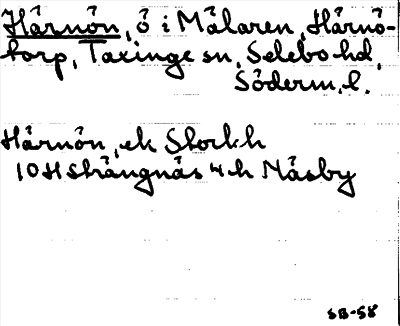 Härnön, ö i Mälaren, Härnö-
torp, Taxinge sn, Selebo hd,
Söderm. l.
Härnön, ek Storkh
10H Strängnäs 4h Näsby
SB-58